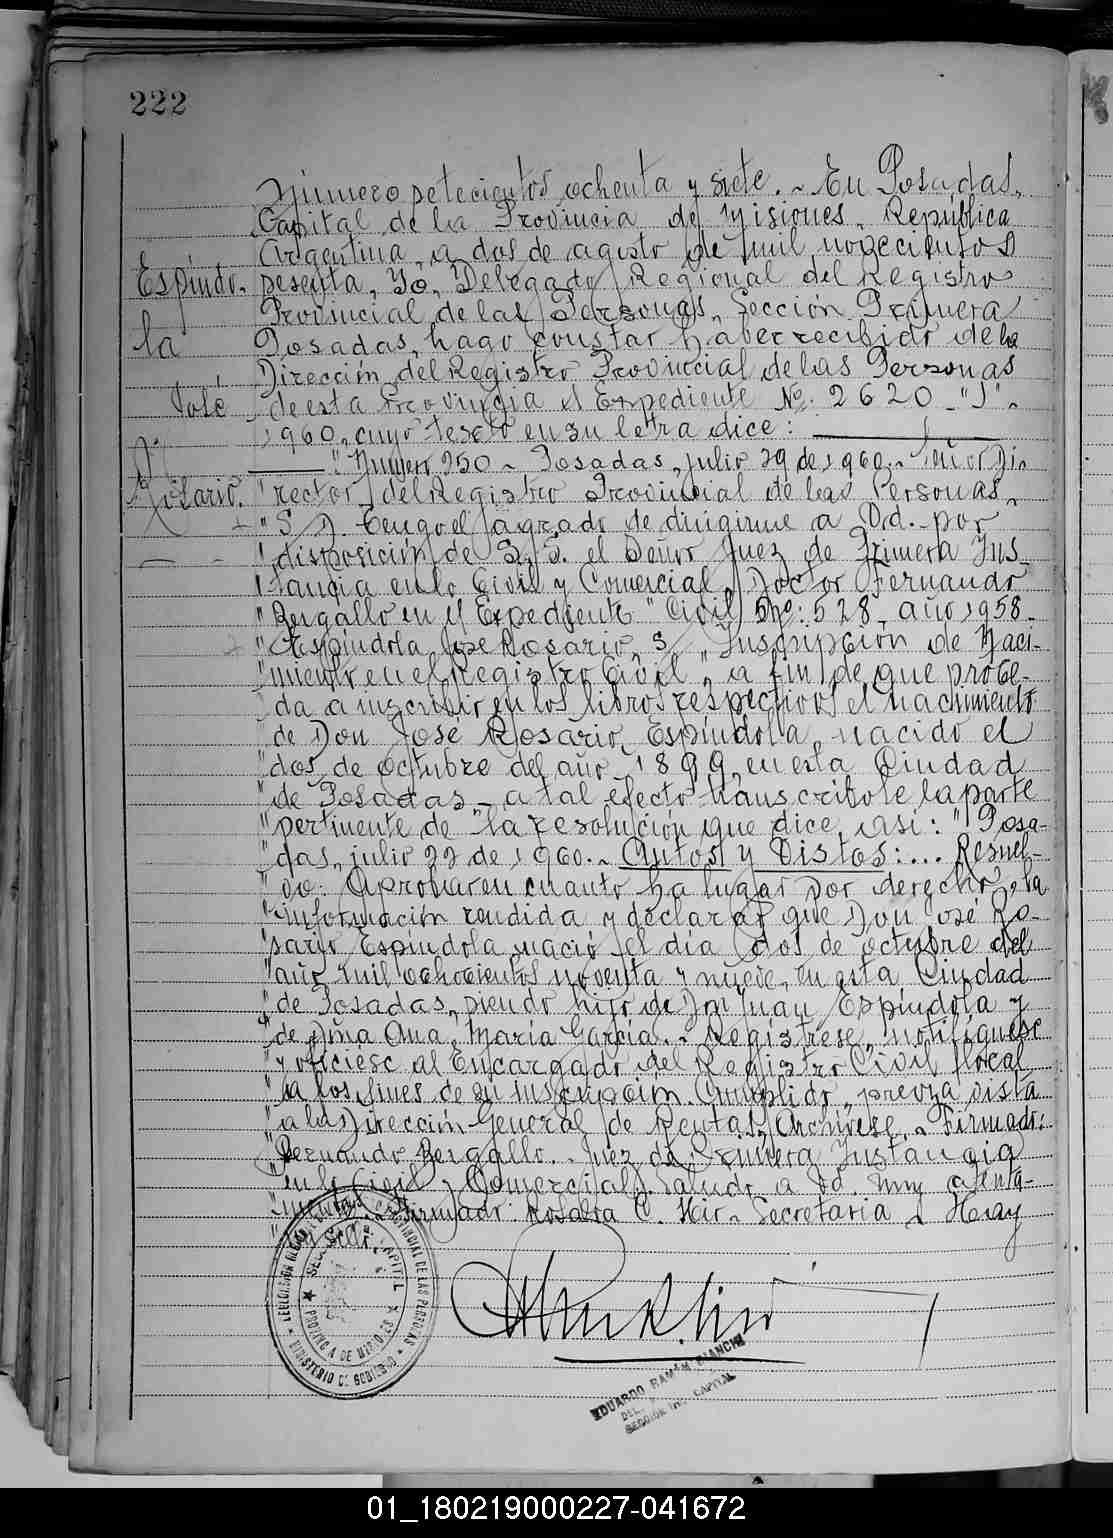 222
Número setecientos ochenta y siete. - En Posadas,
Capital de la Provincia de Misiones, República
Argentina, a dos de agosto de mil novecientos
Espíndo- sesenta, Yo, Delegado Regional del Registro
Provincial de las Personas, Sección Primera
la Posadas, hago constar haber recibido de la
Dirección del Registro Provincial de las Personas
José de esta Provincia el Expediente No. 2620-"J".
1960, cuyo texto en su letra dice:
"Número 250 - Posadas, julio 29 de 1960.- Señor Di-
Rosario. "rector del Registro Provincial de las Personas,
"S / D. Tengo el agrado de dirigirme a Ud. por
"disposición de S. S. el Señor Juez de Primera Ins-
"tancia en lo Civil y Comercial, Doctor Fernando
"Bergallo en el Expediente "Civil, Nº: 528, año 1958.
"Espíndola José Rosario, s/ Inscripción de Naci-
"miento en el Registro Civil", a fin de que proce-
"da a inscribir en los libros respectivos el nacimiento
"de Don José Rosario Espíndola, nacido el
"dos de octubre del año 1899, en esta Ciudad
"de Posadas, - a tal efecto transcríbole la parte
"pertinente de la resolución que dice así: "Posa-
"das, julio 22 de 1960.- Autos y Vistos:... Resuel-
"vo: Aprobar en cuanto ha lugar por derecho, la
"información rendida y declarar que Don José Ro-
"sario Espíndola nació el día dos de octubre del
"año mil ochocientos noventa y nueve, en esta Ciudad
"de Posadas, siendo hijo de Don Juan Espíndola y
"de Doña Ana María García.- Regístrese, notifíquese
"y ofíciese al Encargado del Registro Civil local
"a los fines de su inscripción. Cumplido, previa vista
"a la Dirección General de Rentas, Archívese.- Firmado:
"Fernando Bergallo.- Juez de Primera Instancia
"en lo Civil y Comercial. Saludo a Ud. muy atenta-
"mente.- Firmado: Rosalía C. Secretaria - Hay
"un Sello".
DELEGACION REGISTRO PROVINCIAL DE LAS PERSONAS
MINISTERIO DE GOBIERNO
CAPITAL
PROVINCIA DE MISIONES
EDUARDO RAMÓN BIANCHI
DEL.
SECCIÓN 1ra. CAPITAL
01_180219000227-041672